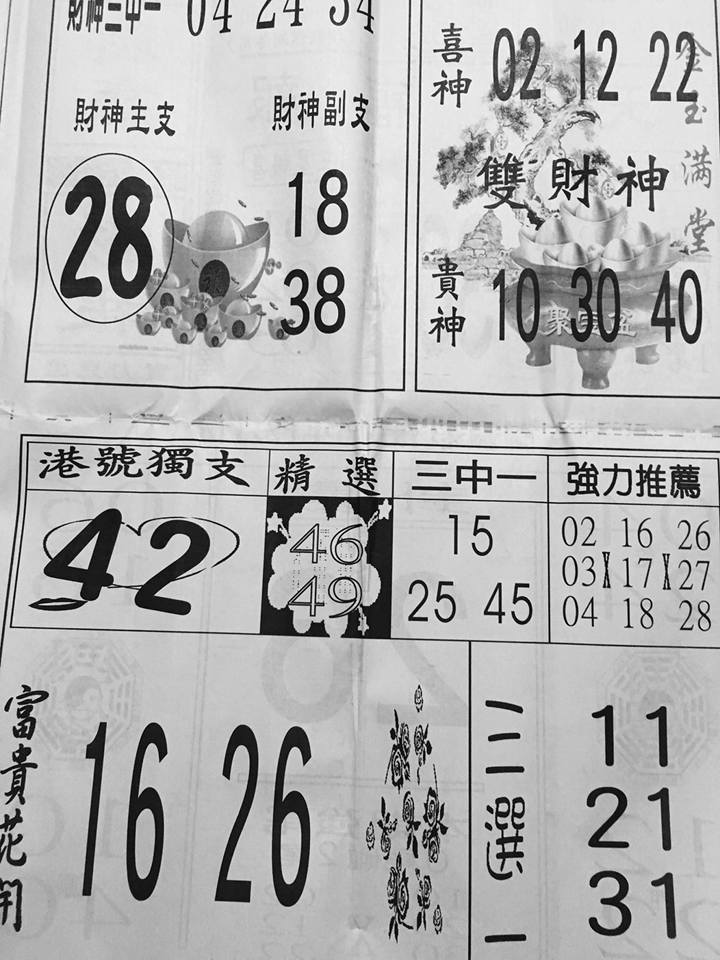 財神三中一 04 24 34
財神主支 財神副支
28
18
38
喜神 02 12 22
金玉滿堂
雙財神
貴神 10 30 40
港號獨支 精選 三中一 強力推薦
42
46
49
15
25 45
02 16 26
03 17 27
04 18 28
富貴花開
16 26
三選一
11
21
31